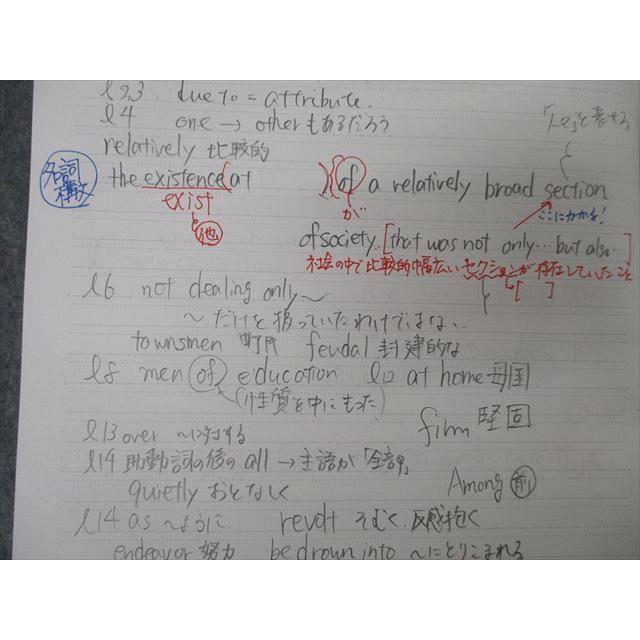 l2,3 due to = attribute.
l4 one → otherもあるだろう
relatively 比較的
名詞構文
the existence (at ) {of a relatively broad section
exist が ここにかかる!
他
of society. [that was not only … but also …]
社会の中で比較的幅広いセクションが存在していたこと
[ ]
l6 not dealing only 〜
〜だけを扱っていたわけではない..
townsmen 町民 feudal 封建的な
l8 men of education l12 at home 母国
(性質を中にもった)
l13 over 〜に対する firm 堅固
l14 助動詞の後の all → 主語が「全部」
quietly おとなしく Among 前
l14 as 〜ように revolt そむく、反感抱く
endeavor 努力 be drown into 〜にとりこまれる